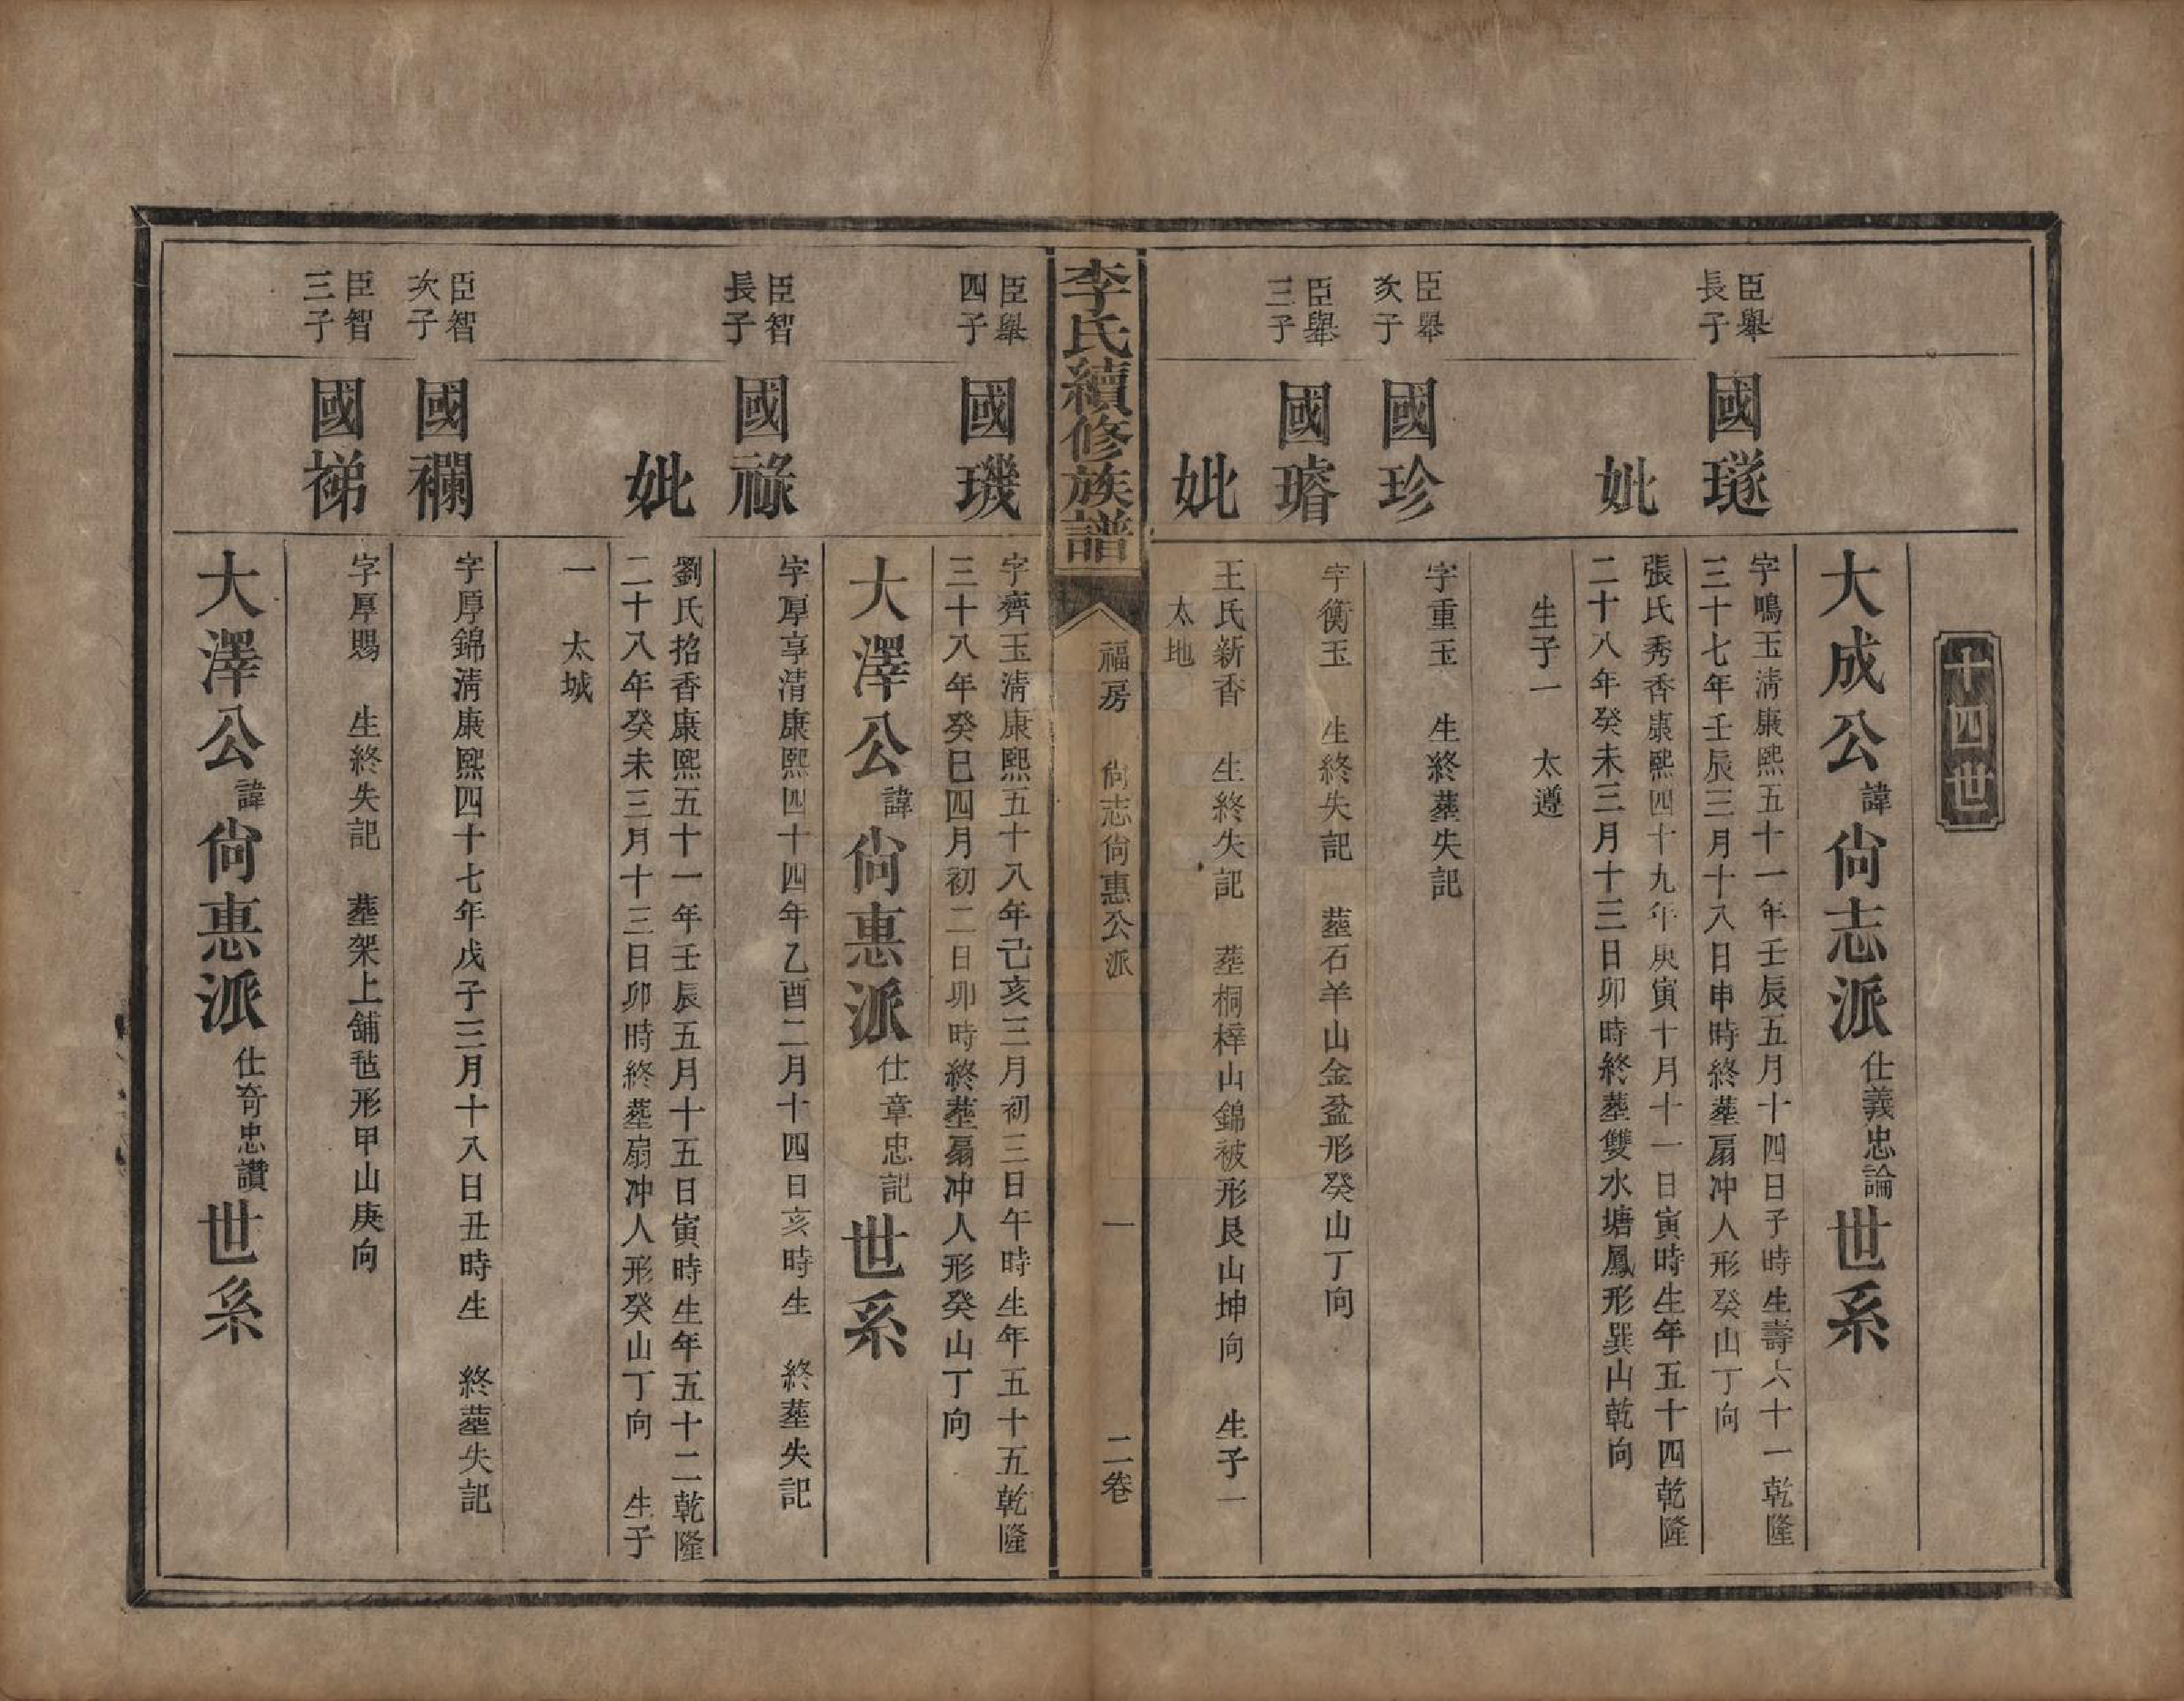 十四世
大成公諱尙志派仕義忠論世系
臣舉長子
國璲
字鳴玉淸康熙五十一年壬辰五月十四日子時生壽六十一乾隆
三十七年壬辰三月十八日申時終塟扇冲人形癸山丁向
妣
張氏秀香康熙四十九年庚寅十月十一日寅時生年五十四乾隆
二十八年癸未三月十三日卯時終塟雙水塘鳳形巽山乾向
生子一　太遵
臣舉次子
國珍
字重玉　生終塟失記
臣舉三子
國璿
字衡玉　生終失記　塟石羊山金盆形癸山丁向
妣
王氏新香　生終失記　塟桐梓山錦被形艮山坤向　生子一
太地
李氏續修族譜
福房　尙志尙惠公派　一　二卷
臣舉四子
國璣
字齊玉淸康熙五十八年己亥三月初三日午時生年五十五乾隆
三十八年癸巳四月初二日卯時終塟扇冲人形癸山丁向
大澤公諱尙惠派仕章忠記世系
臣智長子
國祿
字厚享淸康熙四十四年乙酉二月十四日亥時生　終塟失記
妣
劉氏招香康熙五十一年壬辰五月十五日寅時生年五十二乾隆
二十八年癸未三月十三日卯時終塟扇冲人形癸山丁向　生子
一　太城
臣智次子
國襴
字厚錦淸康熙四十七年戊子三月十八日丑時生　終塟失記
臣智三子
國䄺
字厚賜　生終失記　塟架上舖毡形甲山庚向
大澤公諱尙惠派仕奇忠讚世系